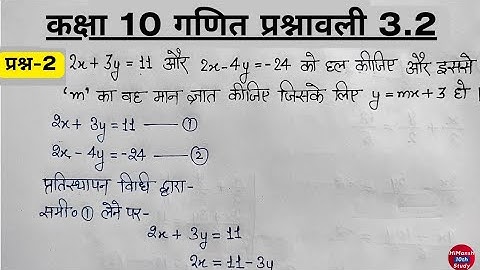 कक्षा 10 गणित प्रश्नावली 3.2
प्रश्न-2
2x + 3y = 11 और 2x-4y = -24 को हल कीजिए और इससे
'm' का वह मान ज्ञात कीजिए जिसके लिए y = mx + 3 हो।
2x + 3y = 11 — ①
2x - 4y = -24 — ②
प्रतिस्थापन विधि द्वारा-
समी० ① लेने पर-
2x + 3y = 11
2x = 11 - 3y
HiMansh
10th
Study